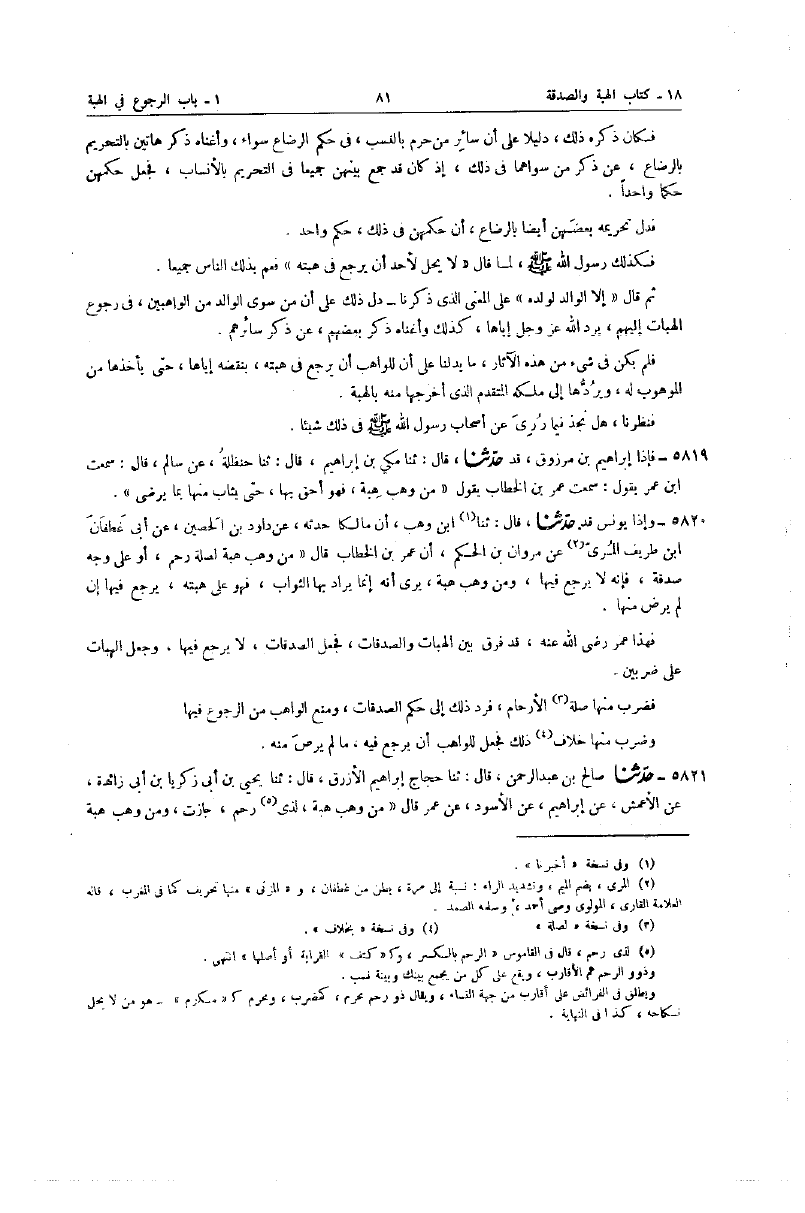 ١٨ - كتاب الهبة والصدقة ٨١ ١ - باب الرجوع في الهبة
فكان ذكره ذلك ، دليلا على أن سائر من حرم بالنسب ، فى حكم الرضاع سواء ، وأغناه ذكر هاتين بالتحريم
بالرضاع ، عن ذكر من سواهما فى ذلك ، إذ كان قد جمع بينهن جميعا فى التحريم بالأنساب ، فجعل حكمهن
حكما واحداً .
فدل تحريمه بعضهن أيضا بالرضاع ، أن حكمهن فى ذلك ، حكم واحد .
فكذلك رسول الله ﷺ ، لما قال « لا يحل لأحد أن يرجع فى هبته » فعم بذلك الناس جميعا .
ثم قال « إلا الوالد لولده » على المعنى الذى ذكرنا ــ دل ذلك على أن من سوى الوالد من الواهبين ، فى رجوع
الهبات إليهم ، يرد الله عز وجل إياها ، كذلك وأغناه ذكر بعضهم ، عن ذكر سائرهم .
فلم يكن فى شىء من هذه الآثار ، ما يدلنا على أن للواهب أن يرجع فى هبته ، بنقضه إياها ، حتى يأخذها من
الموهوب له ، ويردُّها إلى ملكه المتقدم الذى أخرجها منه بالهبة .
فنظرنا ، هل نجد فيما رُوِىَ عن أصحاب رسول الله ﷺ فى ذلك شيئا .
٥٨١٩ ــ فإذا إبراهيم بن مرزوق ، قد حدّثنا ، قال : ثنا مكي بن إبراهيم ، قال : ثنا حنظلةُ ، عن سالم ، قال : سمعت
ابن عمر يقول : سمعت عمر بن الخطاب يقول « من وهب هبة ، فهو أحق بها ، حتى يثاب منها بما يرضى » .
٥٨٢٠ ــ وإذا يونس قد حدّثنا ، قال : ثنا(١) ابن وهب ، أن مالكا حدثه ، عن داود بن الحصين ، عن أبى غَطفَانَ
ابن طريف المُرِّى(٢) عن مروان بن الحكم ، أن عمر بن الخطاب قال « من وهب هبة لصلة رحم ، أو على وجه
صدقة ، فإنه لا يرجع فيها ، ومن وهب هبة ، يرى أنه إنما يراد بها الثواب ، فهو على هبته ، يرجع فيها إن
لم يرض منها .
فهذا عمر رضى الله عنه ، قد فرق بين الهبات والصدقات ، فجعل الصدقات ، لا يرجع فيها . وجعل الهبات
على ضربين .
فضرب منها صلة(٣) الأرحام ، فرد ذلك إلى حكم الصدقات ، ومنع الواهب من الرجوع فيها
وضرب منها خلاف(٤) ذلك فجعل للواهب أن يرجع فيه ، ما لم يرض منه .
٥٨٢١ ــ حدّثنا صالح بن عبدالرحمن ، قال : ثنا حجاج إبراهيم الأزرق ، قال : ثنا يحيى بن أبى زكريا بن أبى زائدة ،
عن الأعمش ، عن إبراهيم ، عن الأسود ، عن عمر قال « من وهب هبة ، لذى(٥) رحم ، جازت ، ومن وهب هبة
(١) وفى نسخة « أخبرنا » .
(٢) المرى ، بضم الميم ، وتشديد الراء : نسبة إلى مرة ، بطن من غطفان ، و « المزنى » منها تحريف كما فى المغرب ، قاله
العلامة القارى ، المولوى وصى أحمد ، سلمه الصمد .
(٣) وفى نسخة « لصلة » (٤) وفى نسخة « بخلاف » .
(٥) لذى رحم ، قال فى القاموس « الرحم بالكسر ، وكـ« كتف » القرابة أو أصلها » انتهى .
وذوو الرحم هم الأقارب ، ويقع على كل من يجمع بينك وبينه نسب .
ويطلق فى الفرائض على أقارب من جهة النساء ، ويقال ذو رحم محرم ، كمضرب ، ومحرم كـ « مكرم » ــ هو من لا يحل
نكاحه ، كذا فى النهاية .